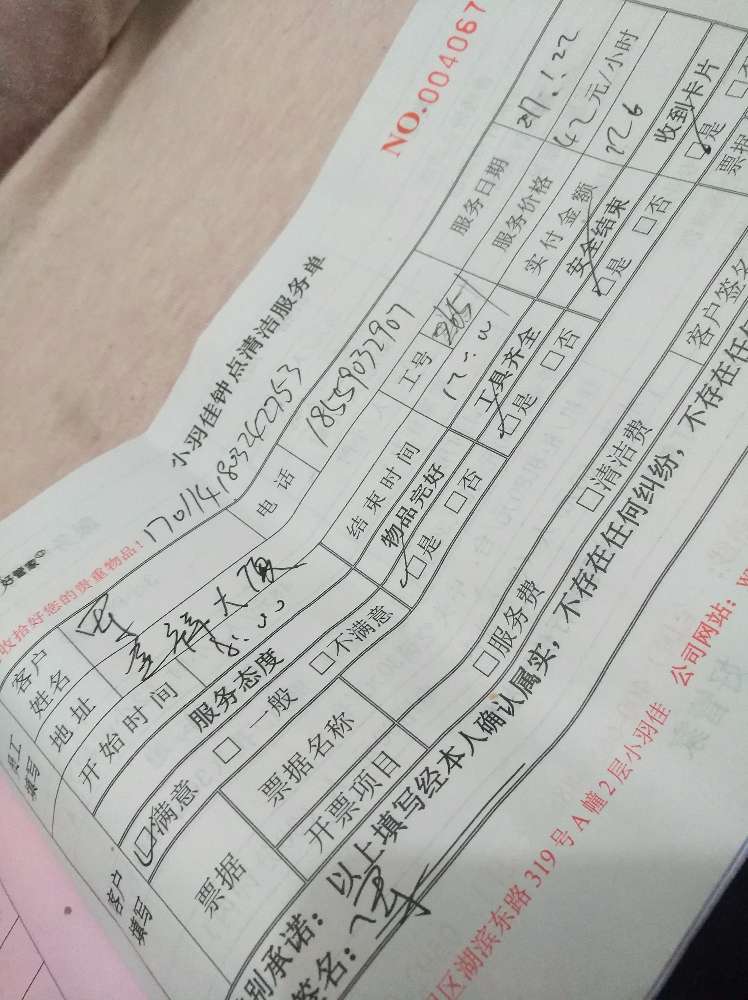 收拾好您的贵重物品！
1701141803242753
NO.004067
小羽佳钟点清洁服务单
客户姓名
电话 18559032907
服务日期 2017.1.22
地址 大厦
工号
服务价格 42元/小时
开始时间 8:00
结束时间 12:00
实付金额 226
服务态度 物品完好 工具齐全 安全结束 收到卡片
☑满意 □一般 □不满意 ☑是 □否 ☑是 □否 ☑是 □否 ☑是 □否
员工填写
客户填写
票据
票据名称
开票项目 □服务费 □清洁费
客户签名
别承诺：以上填写经本人确认属实，不存在任何纠纷，不存在任
签名：
区湖滨东路319号A幢2层小羽佳 公司网站：